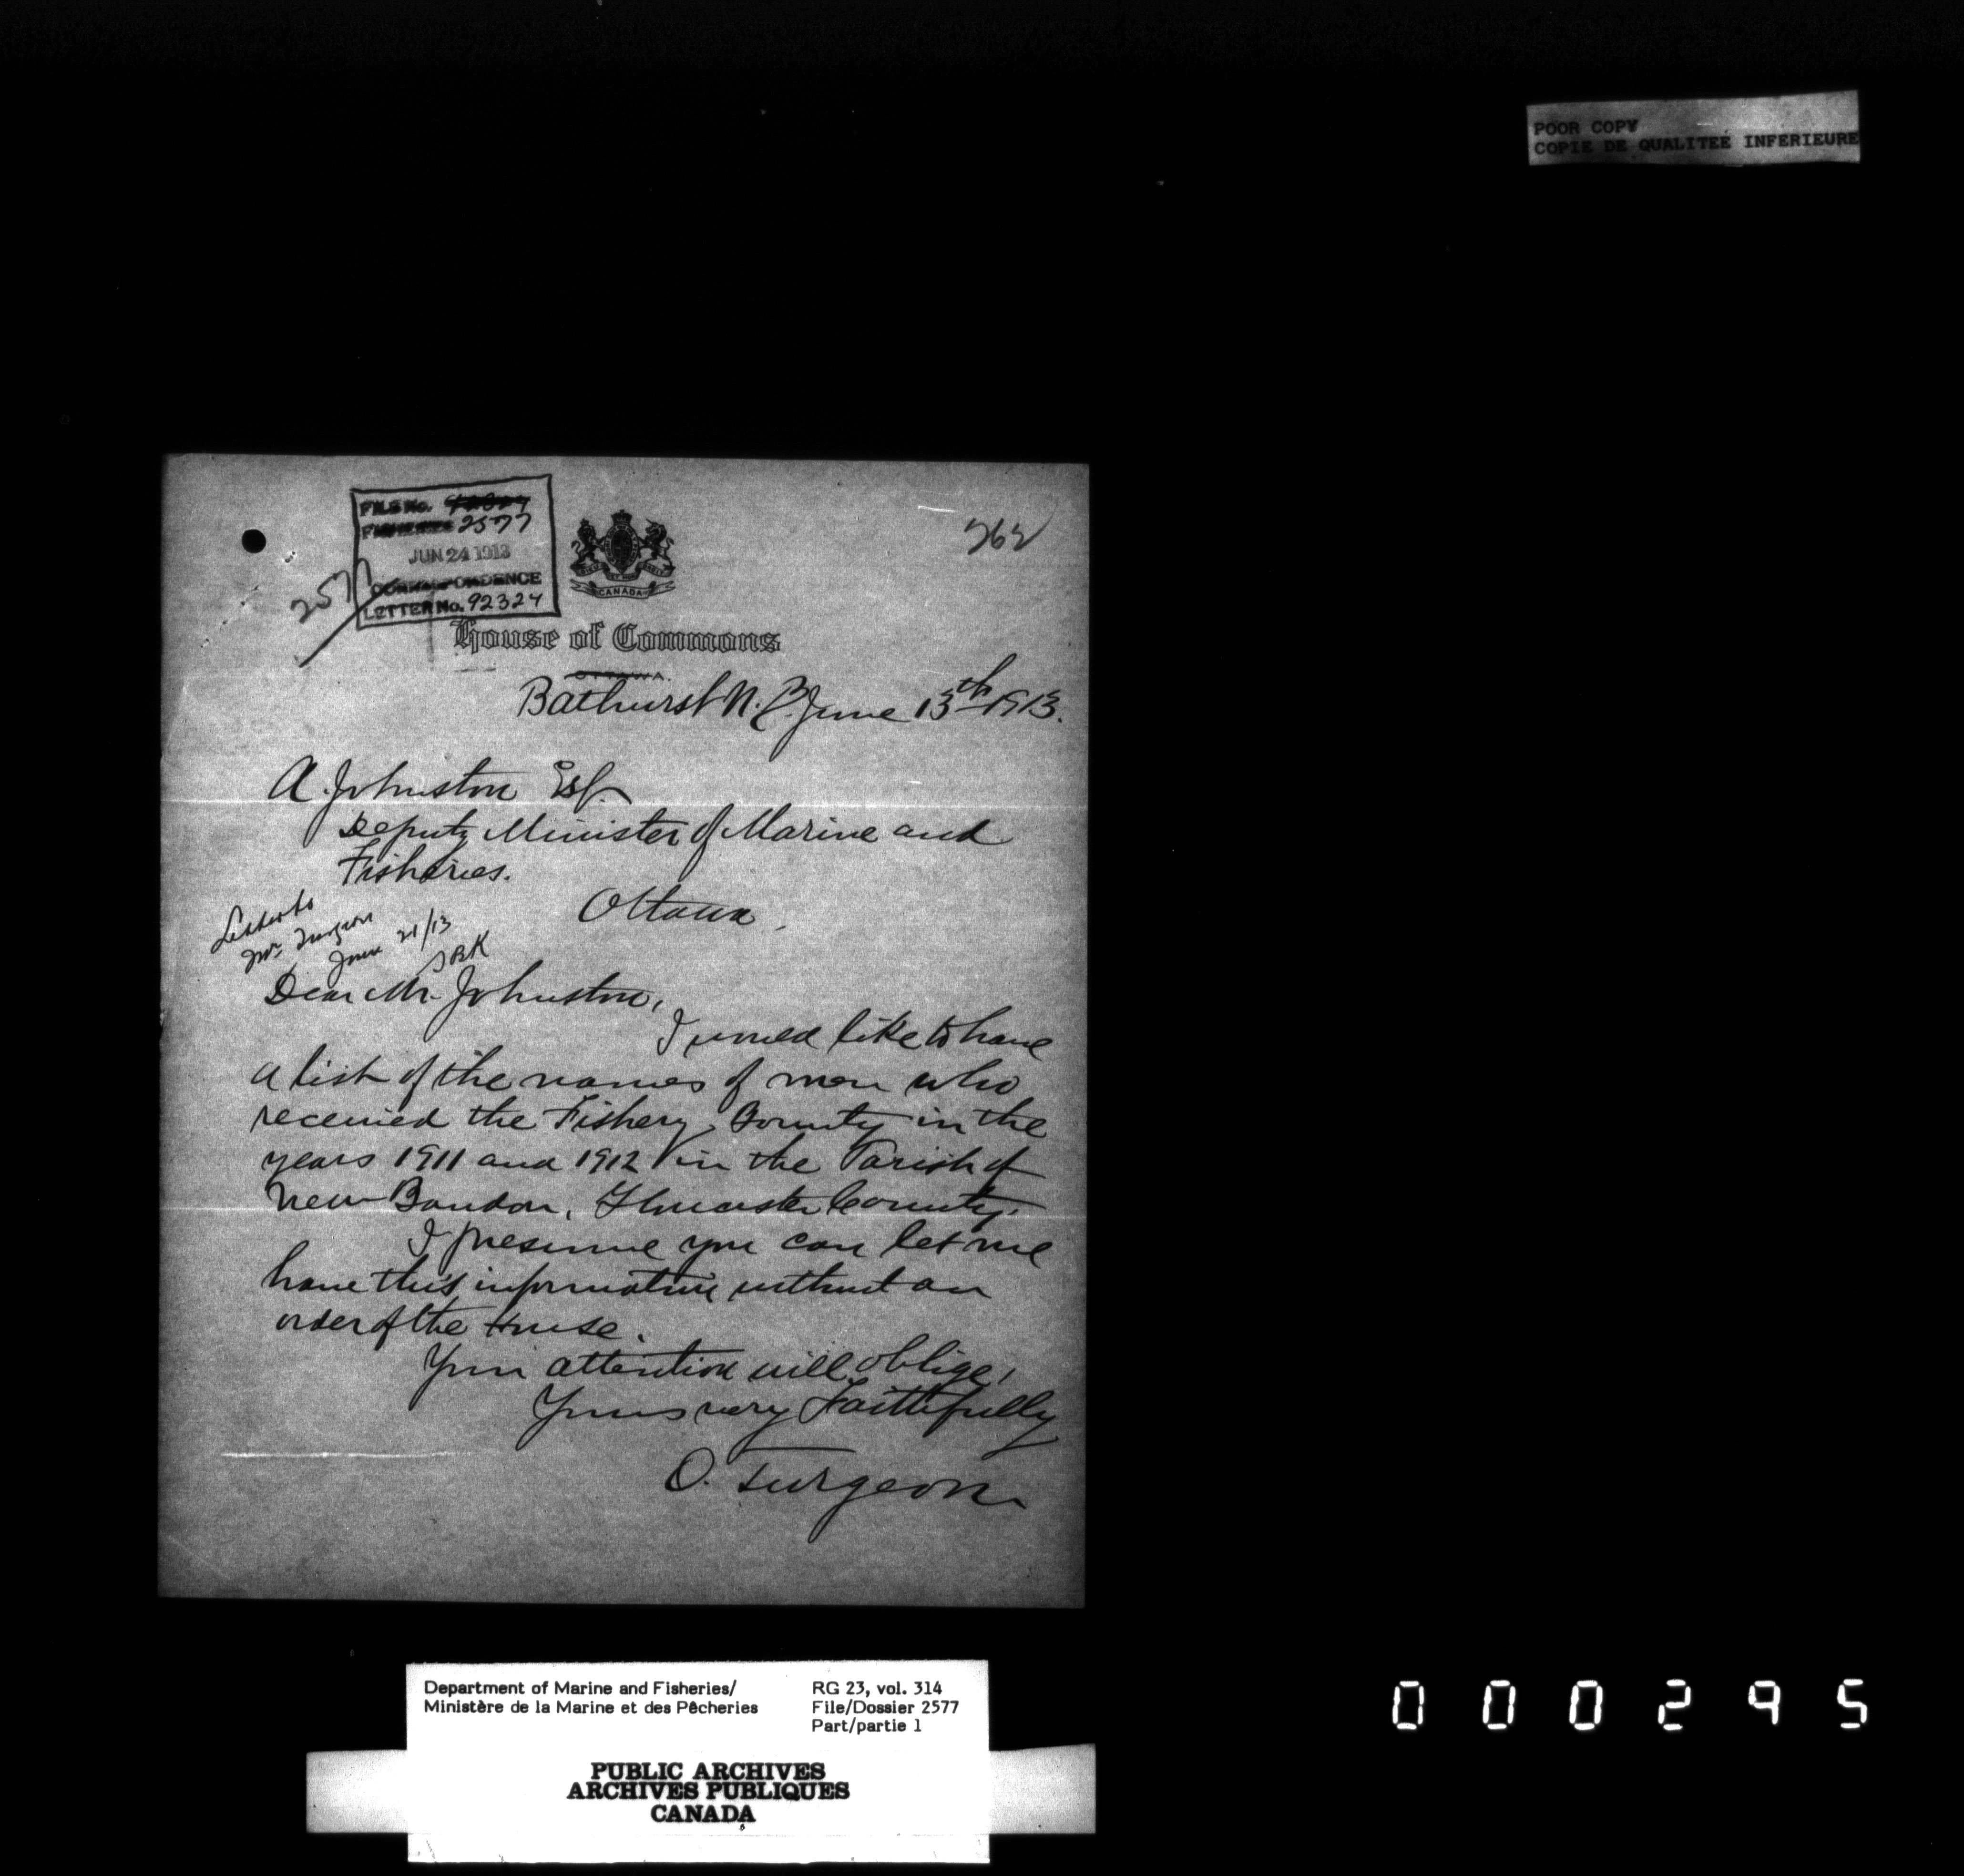 POOR COPY
COPIE DE QUALITEE INFERIEURE
FILE No.
FISHERIES 2577
JUN 24 1913
CORRESPONDENCE
LETTER No. 92324
2577
262
CANADA
House of Commons
OTTAWA.
Bathurst N.B. June 13th 1913.
A. Johnston Esq.
Deputy Minister of Marine and
Fisheries.
Ottawa.
Letter to
Mr. Turgeon
June 21/13
JBK
Dear Mr. Johnston,
I would like to have
a list of the names of men who
received the Fishery Bounty in the
years 1911 and 1912 in the Parish of
New Bandon, Gloucester County.
I presume you can let me
have this information without an
order of the House.
Your attention will oblige,
Yours very Faithfully
O. Turgeon
Department of Marine and Fisheries/
Ministère de la Marine et des Pêcheries
RG 23, vol. 314
File/Dossier 2577
Part/partie 1
PUBLIC ARCHIVES
ARCHIVES PUBLIQUES
CANADA
000295